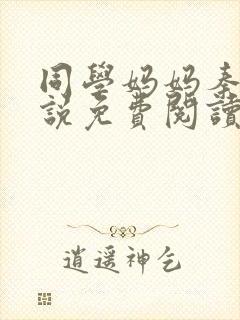 同學妈妈秦
說免費閱讀
逍遥神乞